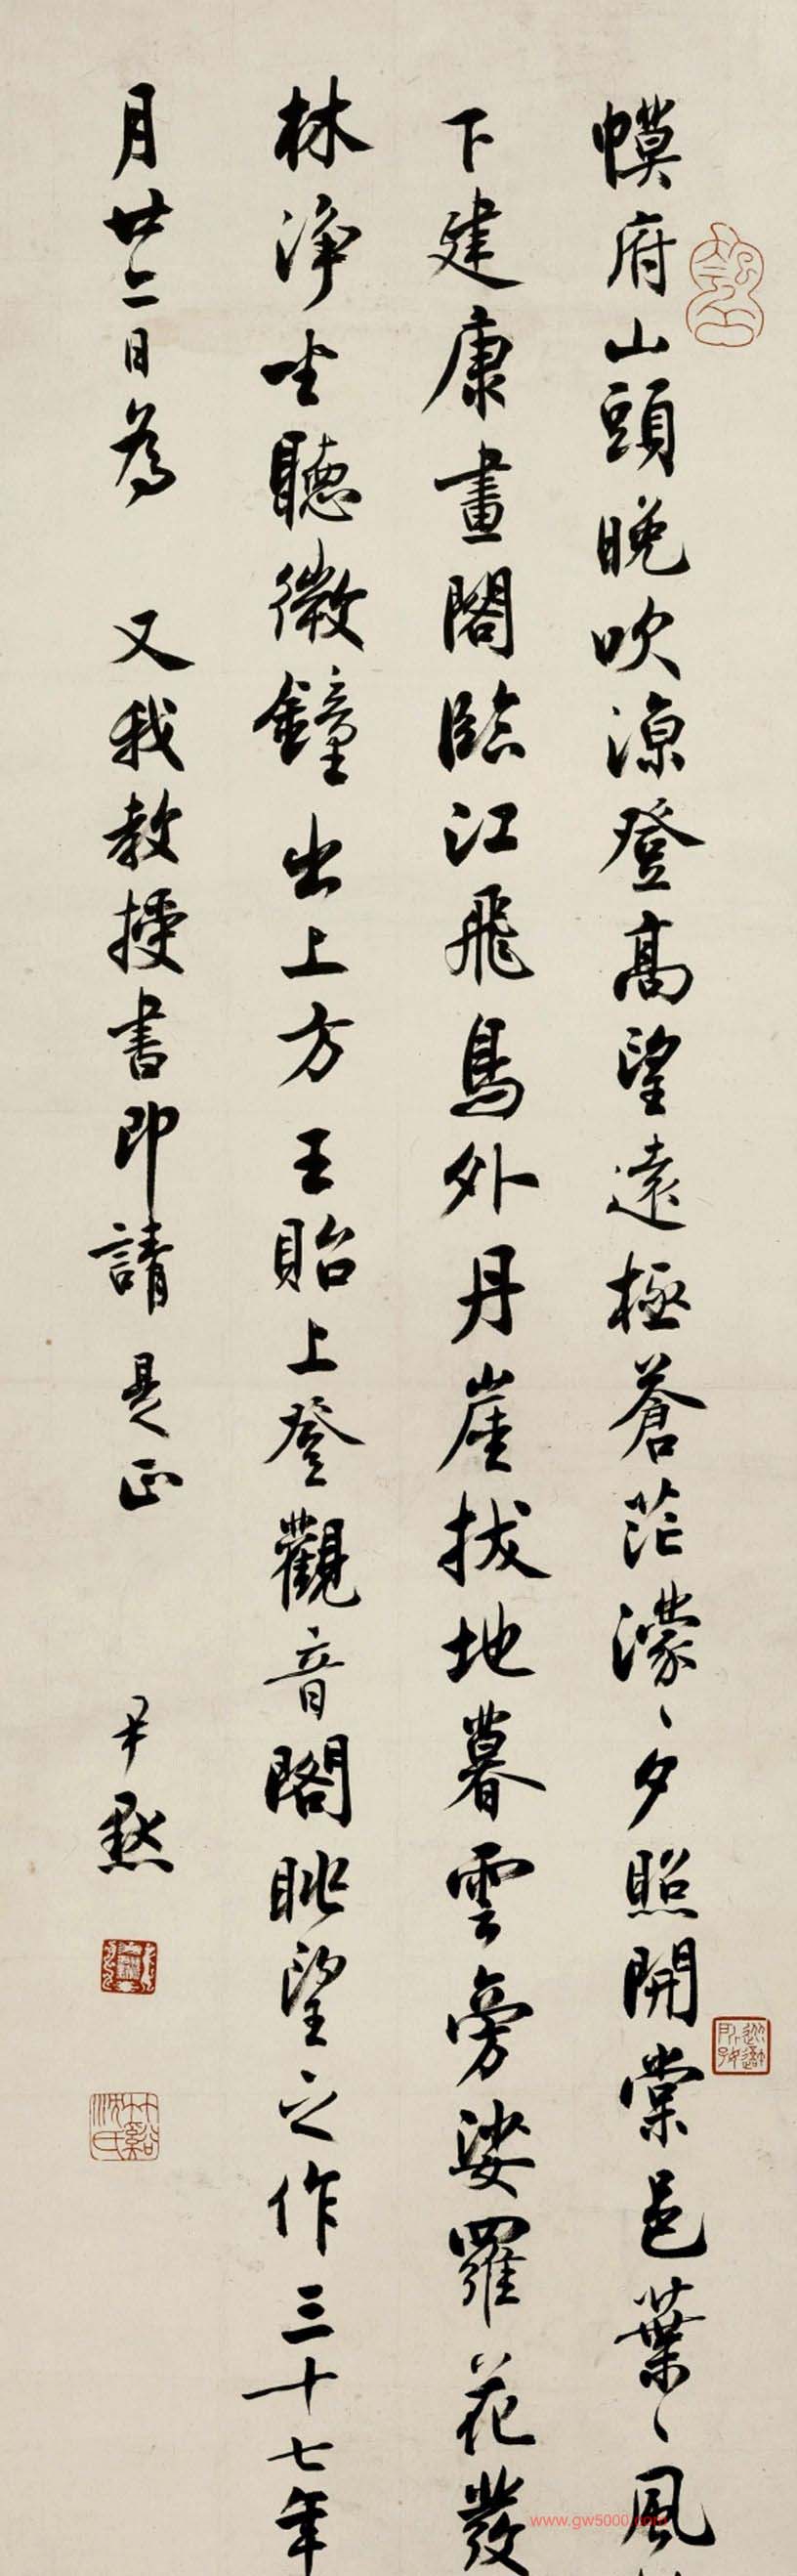 幙府山頭晚吹涼登高望遠極蒼茫濛〻夕照開棠邑葉〻風
下建康畫閣臨江飛鳥外丹崖拔地暮雲旁娑羅花發
林淨坐聽微鐘出上方王貽上登觀音閣眺望之作三十七年
月廿二日為 又我教授書即請是正
尹默
竹谿沈氏
www.gw5000.com